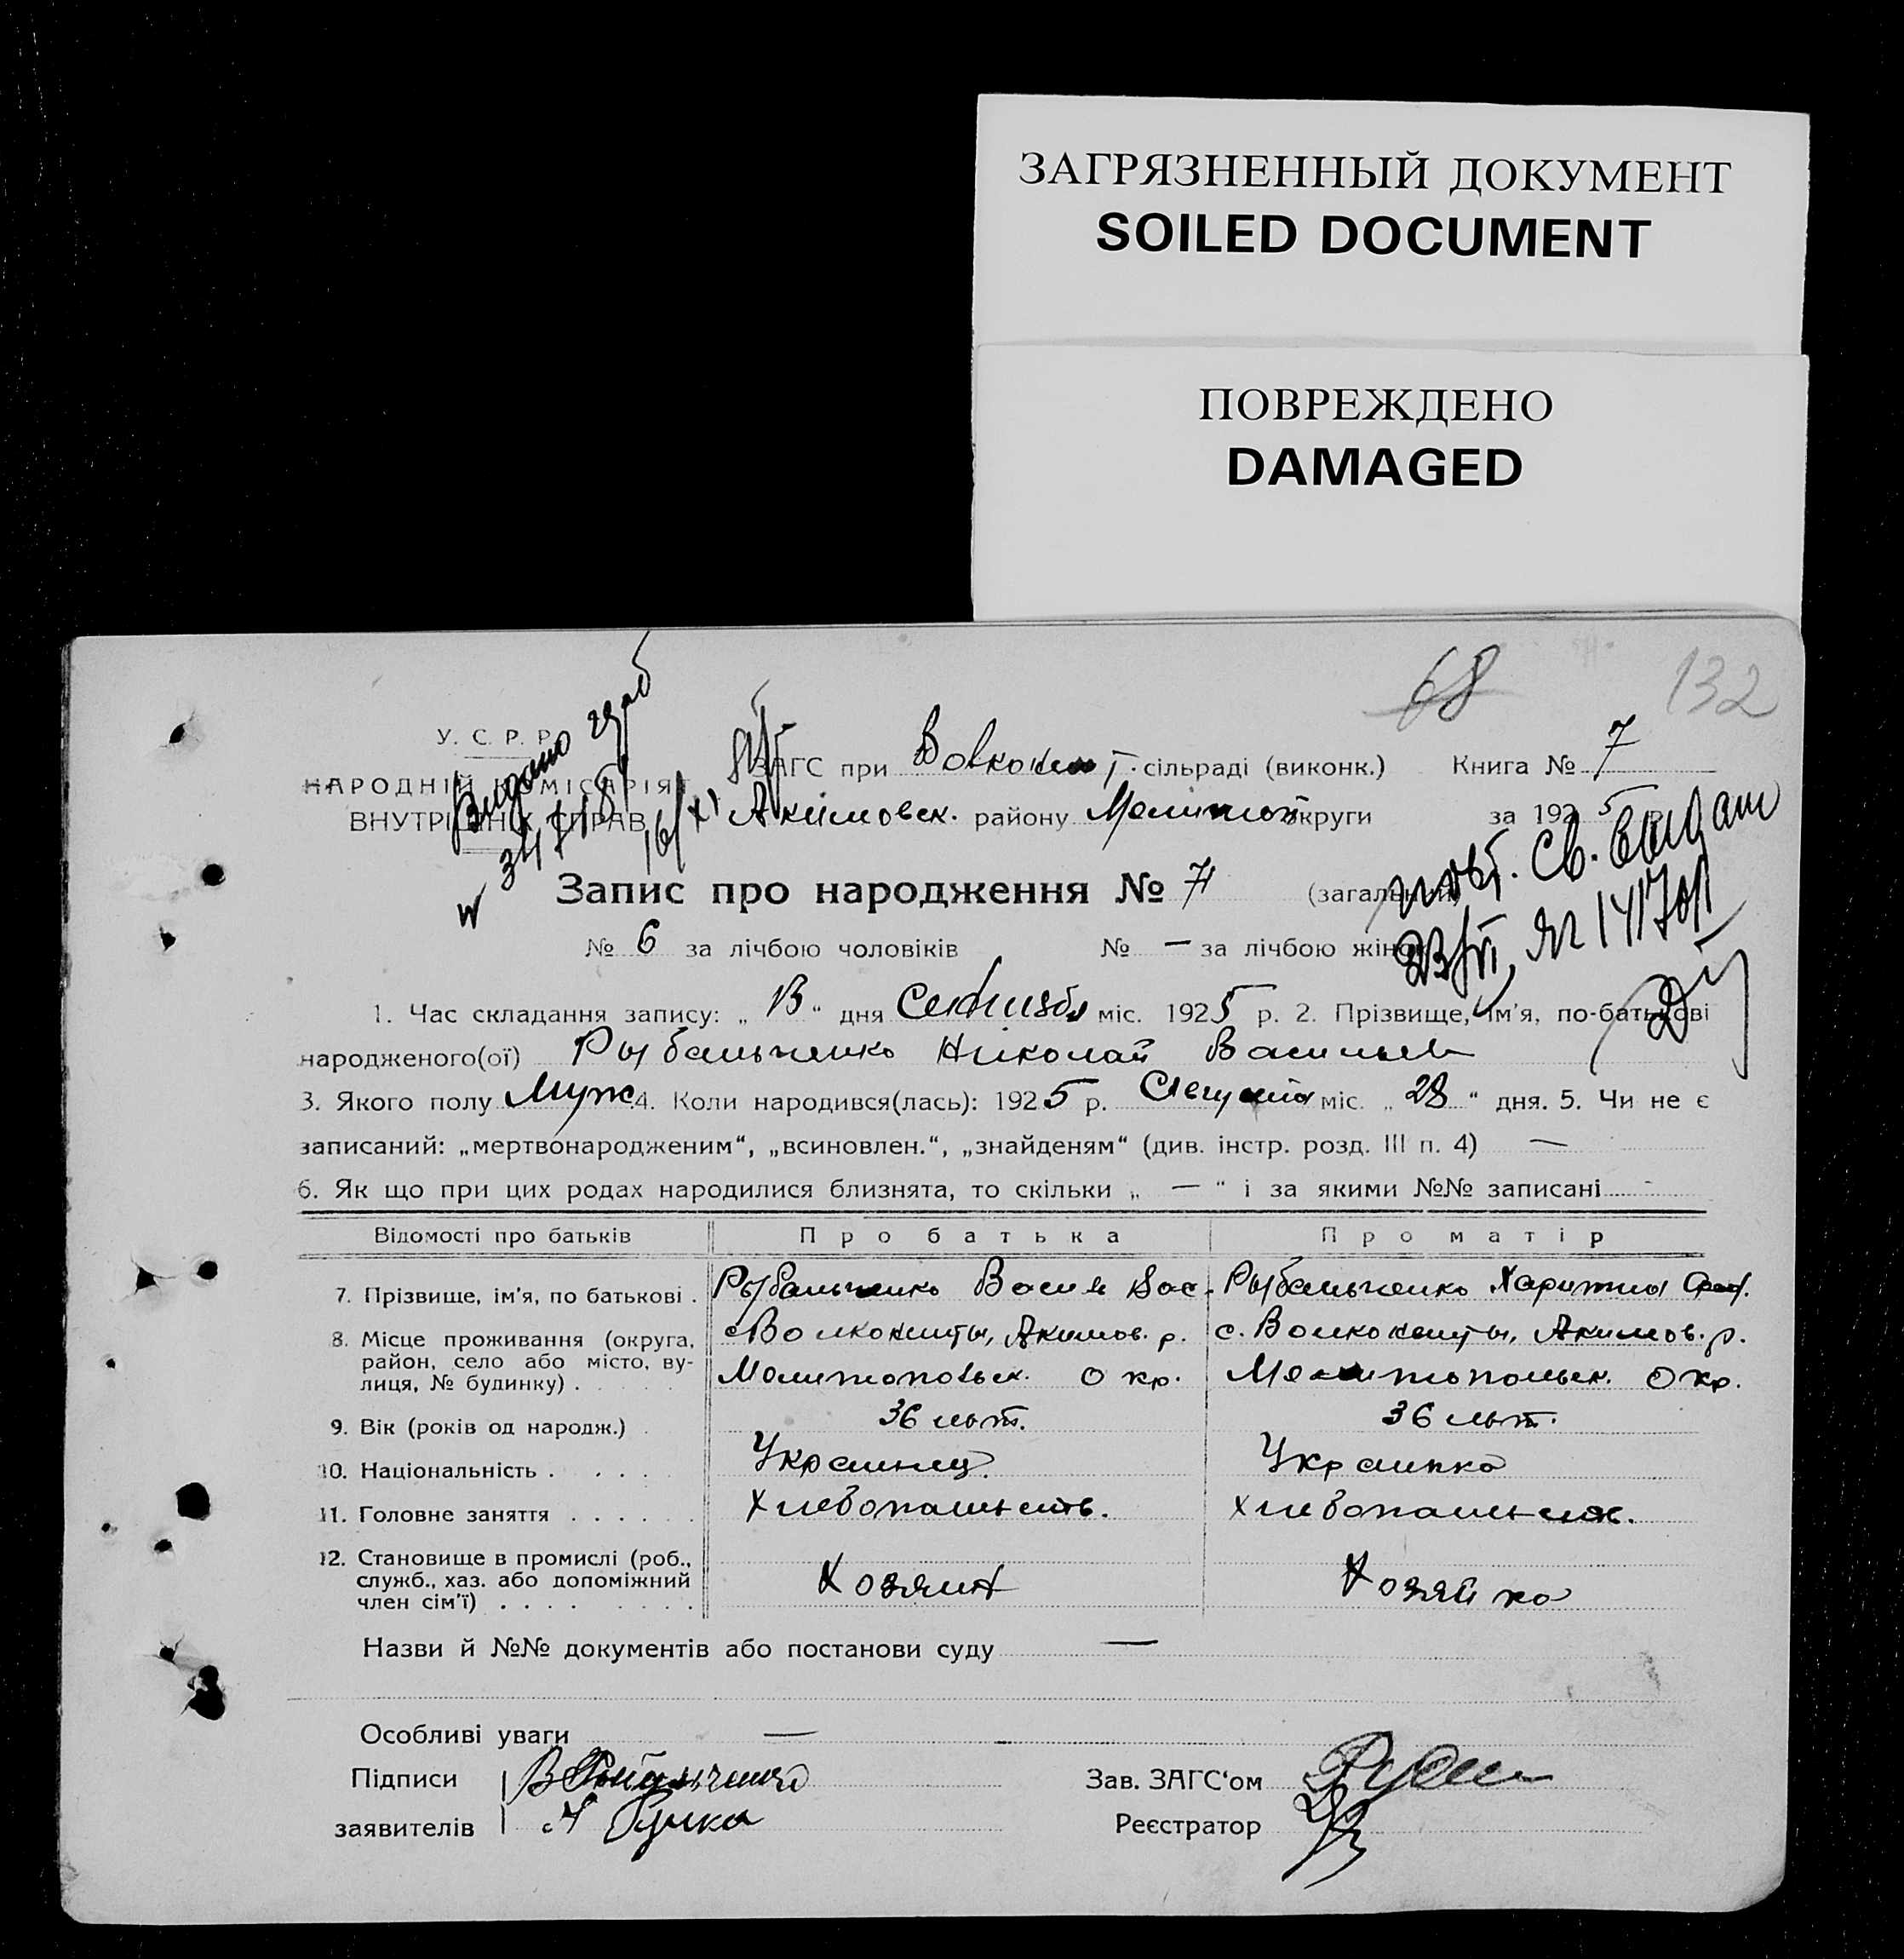 ЗАГРЯЗНЕННЫЙ ДОКУМЕНТ
SOILED DOCUMENT
ПОВРЕЖДЕНО
DAMAGED
68 132
У. С. Р. Р.
НАРОДНІЙ КОМІСАРІЯТ
ВНУТРІШНІХ СПРАВ
Видано
ЗАГС при сільраді (виконк.) Книга № 7
Акимовск. району Мелитоп округи за 1925
повт. св. выдат
Запис про народження № 7 (загальний
№ 6 за лічбою чоловіків № — за лічбою жінок
1. Час складання запису: „ “ дня міс. 1925 р. 2. Прізвище, ім’я, по-батькові
народженого(ої) Рыбальченко Николай Васильев
3. Якого полу Муж 4. Коли народився(лась): 1925 р. Августа міс. „ 28 “ дня. 5. Чи не є
записаний: „мертвонародженим“, „всиновлен.“, „знайденям“ (див. інстр. розд. III п. 4) —
6. Як що при цих родах народилися близнята, то скільки „ — “ і за якими №№ записані -
Відомості про батьків Про батька Про матір
7. Прізвище, ім’я, по батькові . Рыбальченко Василь Вас. Рыбальченко Харитина
8. Місце проживання (округа, район, село або місто, вулиця, № будинку) . с. Акимов. р. с. Акимов. р.
Мелитопольск. Окр. Мелитопольск. Окр.
9. Вік (років од народж.) . 36 лет. 36 лет.
10. Національність . Украинец. Украинка
11. Головне заняття . . . . . . Хлебопашест. Хлебопашест.
12. Становище в промислі (роб., служб., хаз. або допоміжний член сім’ї) . . . . Хозяин Хозяйка
Назви й №№ документів або постанови суду —
Особливі уваги —
Підписи В Рыбальченко Зав. ЗАГС‘ом
заявителів Реєстратор